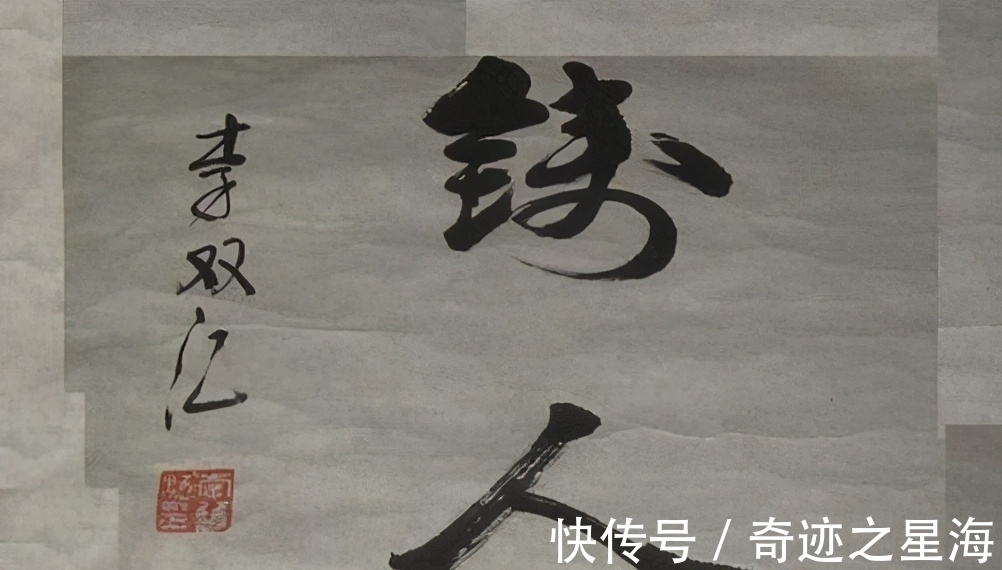 铸人
李双江
快传号 / 奇迹之星海